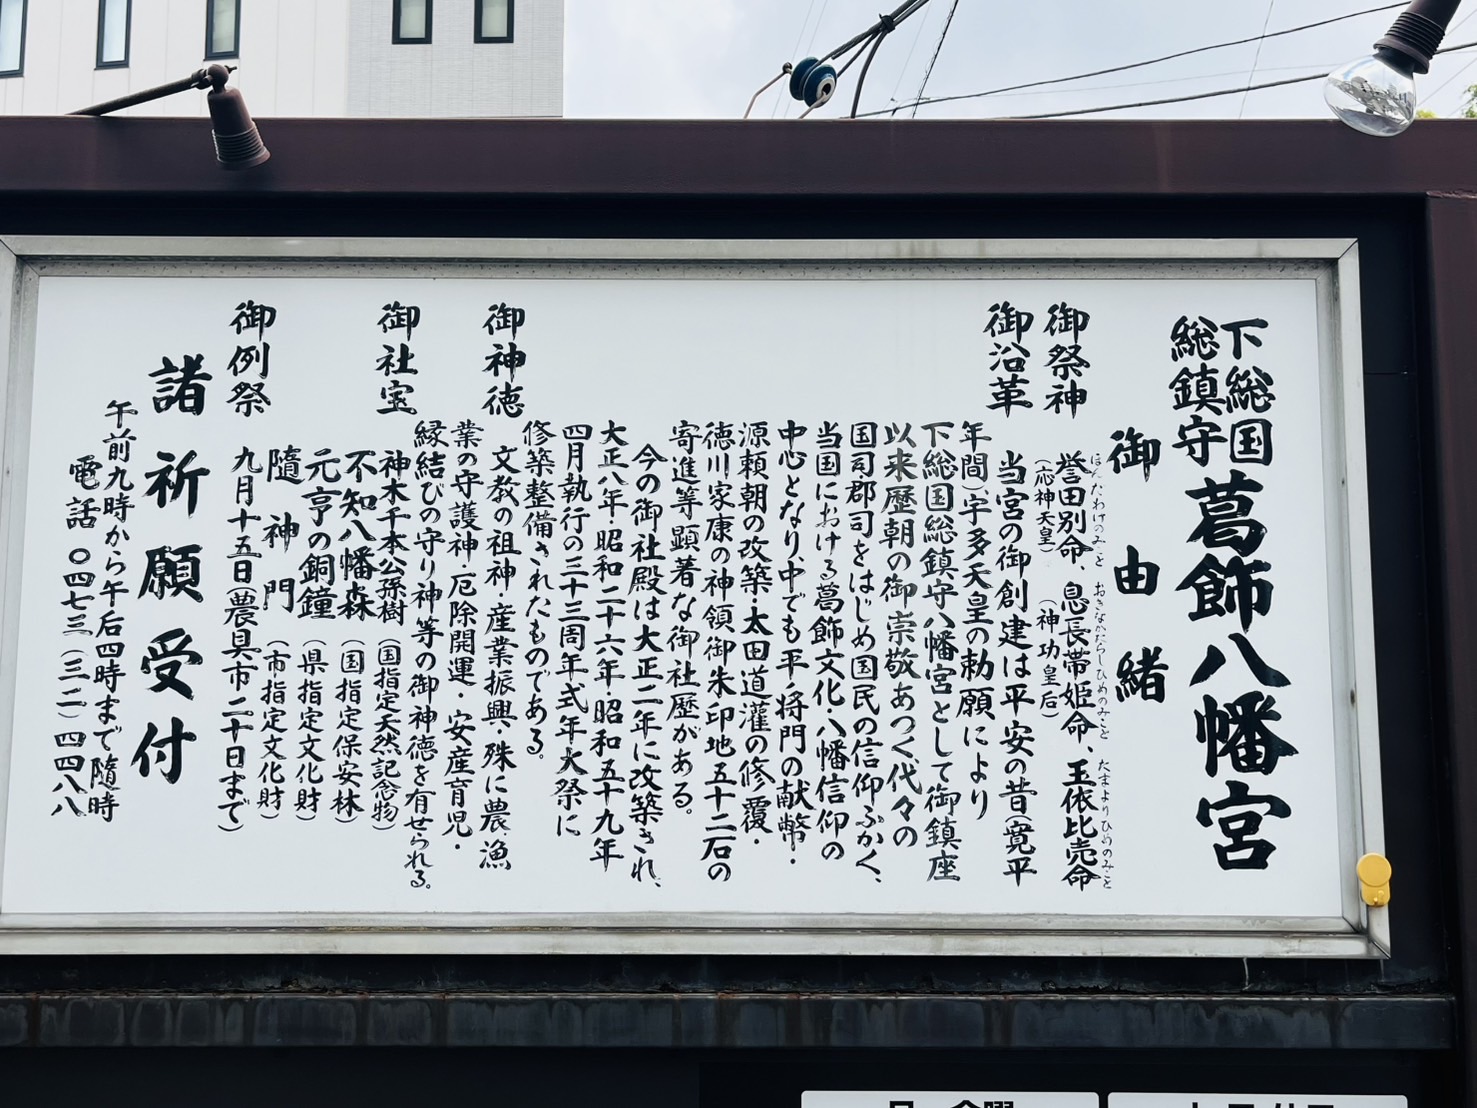 下総国
総鎮守
葛飾八幡宮
御由緒
御祭神
ほんだわけのみこと おきながたらしひめのみこと たまよりひめのみこと
誉田別命、息長帯姫命、玉依比売命
(応神天皇) (神功皇后)
御沿革
当宮の御創建は平安の昔(寛平
年間)宇多天皇の勅願により
下総国総鎮守八幡宮として御鎮座
以来歴朝の御崇敬あつく代々の
国司郡司をはじめ国民の信仰ふかく、
当国における葛飾文化・八幡信仰の
中心となり、中でも平将門の献幣・
源頼朝の改築・太田道灌の修覆・
徳川家康の神領御朱印地五十二石の
寄進等顕著な御社歴がある。
今の御社殿は大正二年に改築され、
大正八年・昭和二十六年・昭和五十九年
四月執行の三十三周年式年大祭に
修築整備されたものである。
御神徳
文教の祖神・産業振興・殊に農漁
業の守護神・厄除開運・安産育児・
縁結びの守り神等の御神徳を有せられる。
御社宝
神木千本公孫樹(国指定天然記念物)
不知八幡森(国指定保安林)
元亨の銅鐘(県指定文化財)
隨神門(市指定文化財)
御例祭
九月十五日(農具市二十日まで)
諸祈願受付
午前九時から午后四時まで隨時
電話 〇四七三(三二)四四八八